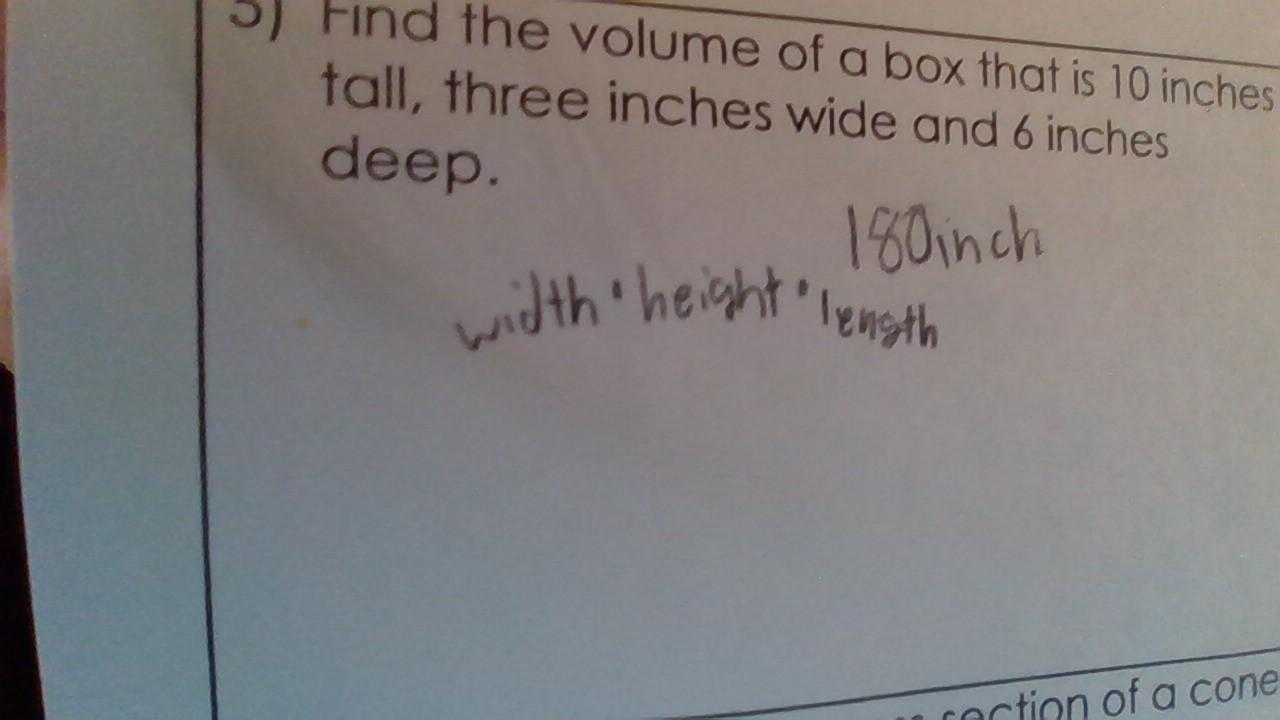 5) Find the volume of a box that is 10 inches
tall, three inches wide and 6 inches
deep.
180inch
width · height · length
section of a cone